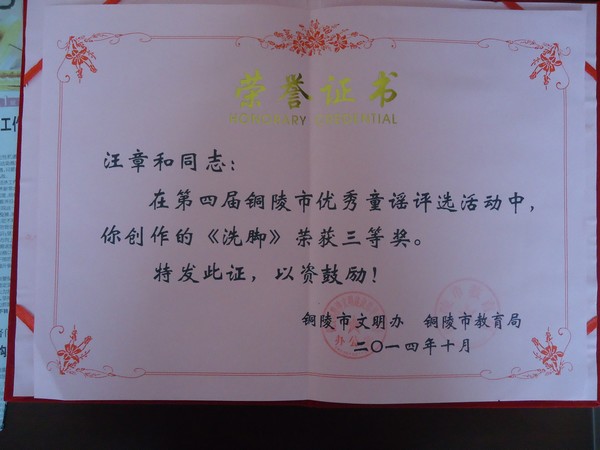 荣誉证书
HONORARY CREDENTIAL
汪章和同志：
在第四届铜陵市优秀童谣评选活动中，
你创作的《洗脚》荣获三等奖。
特发此证，以资鼓励！
铜陵市文明办 铜陵市教育局
二〇一四年十月